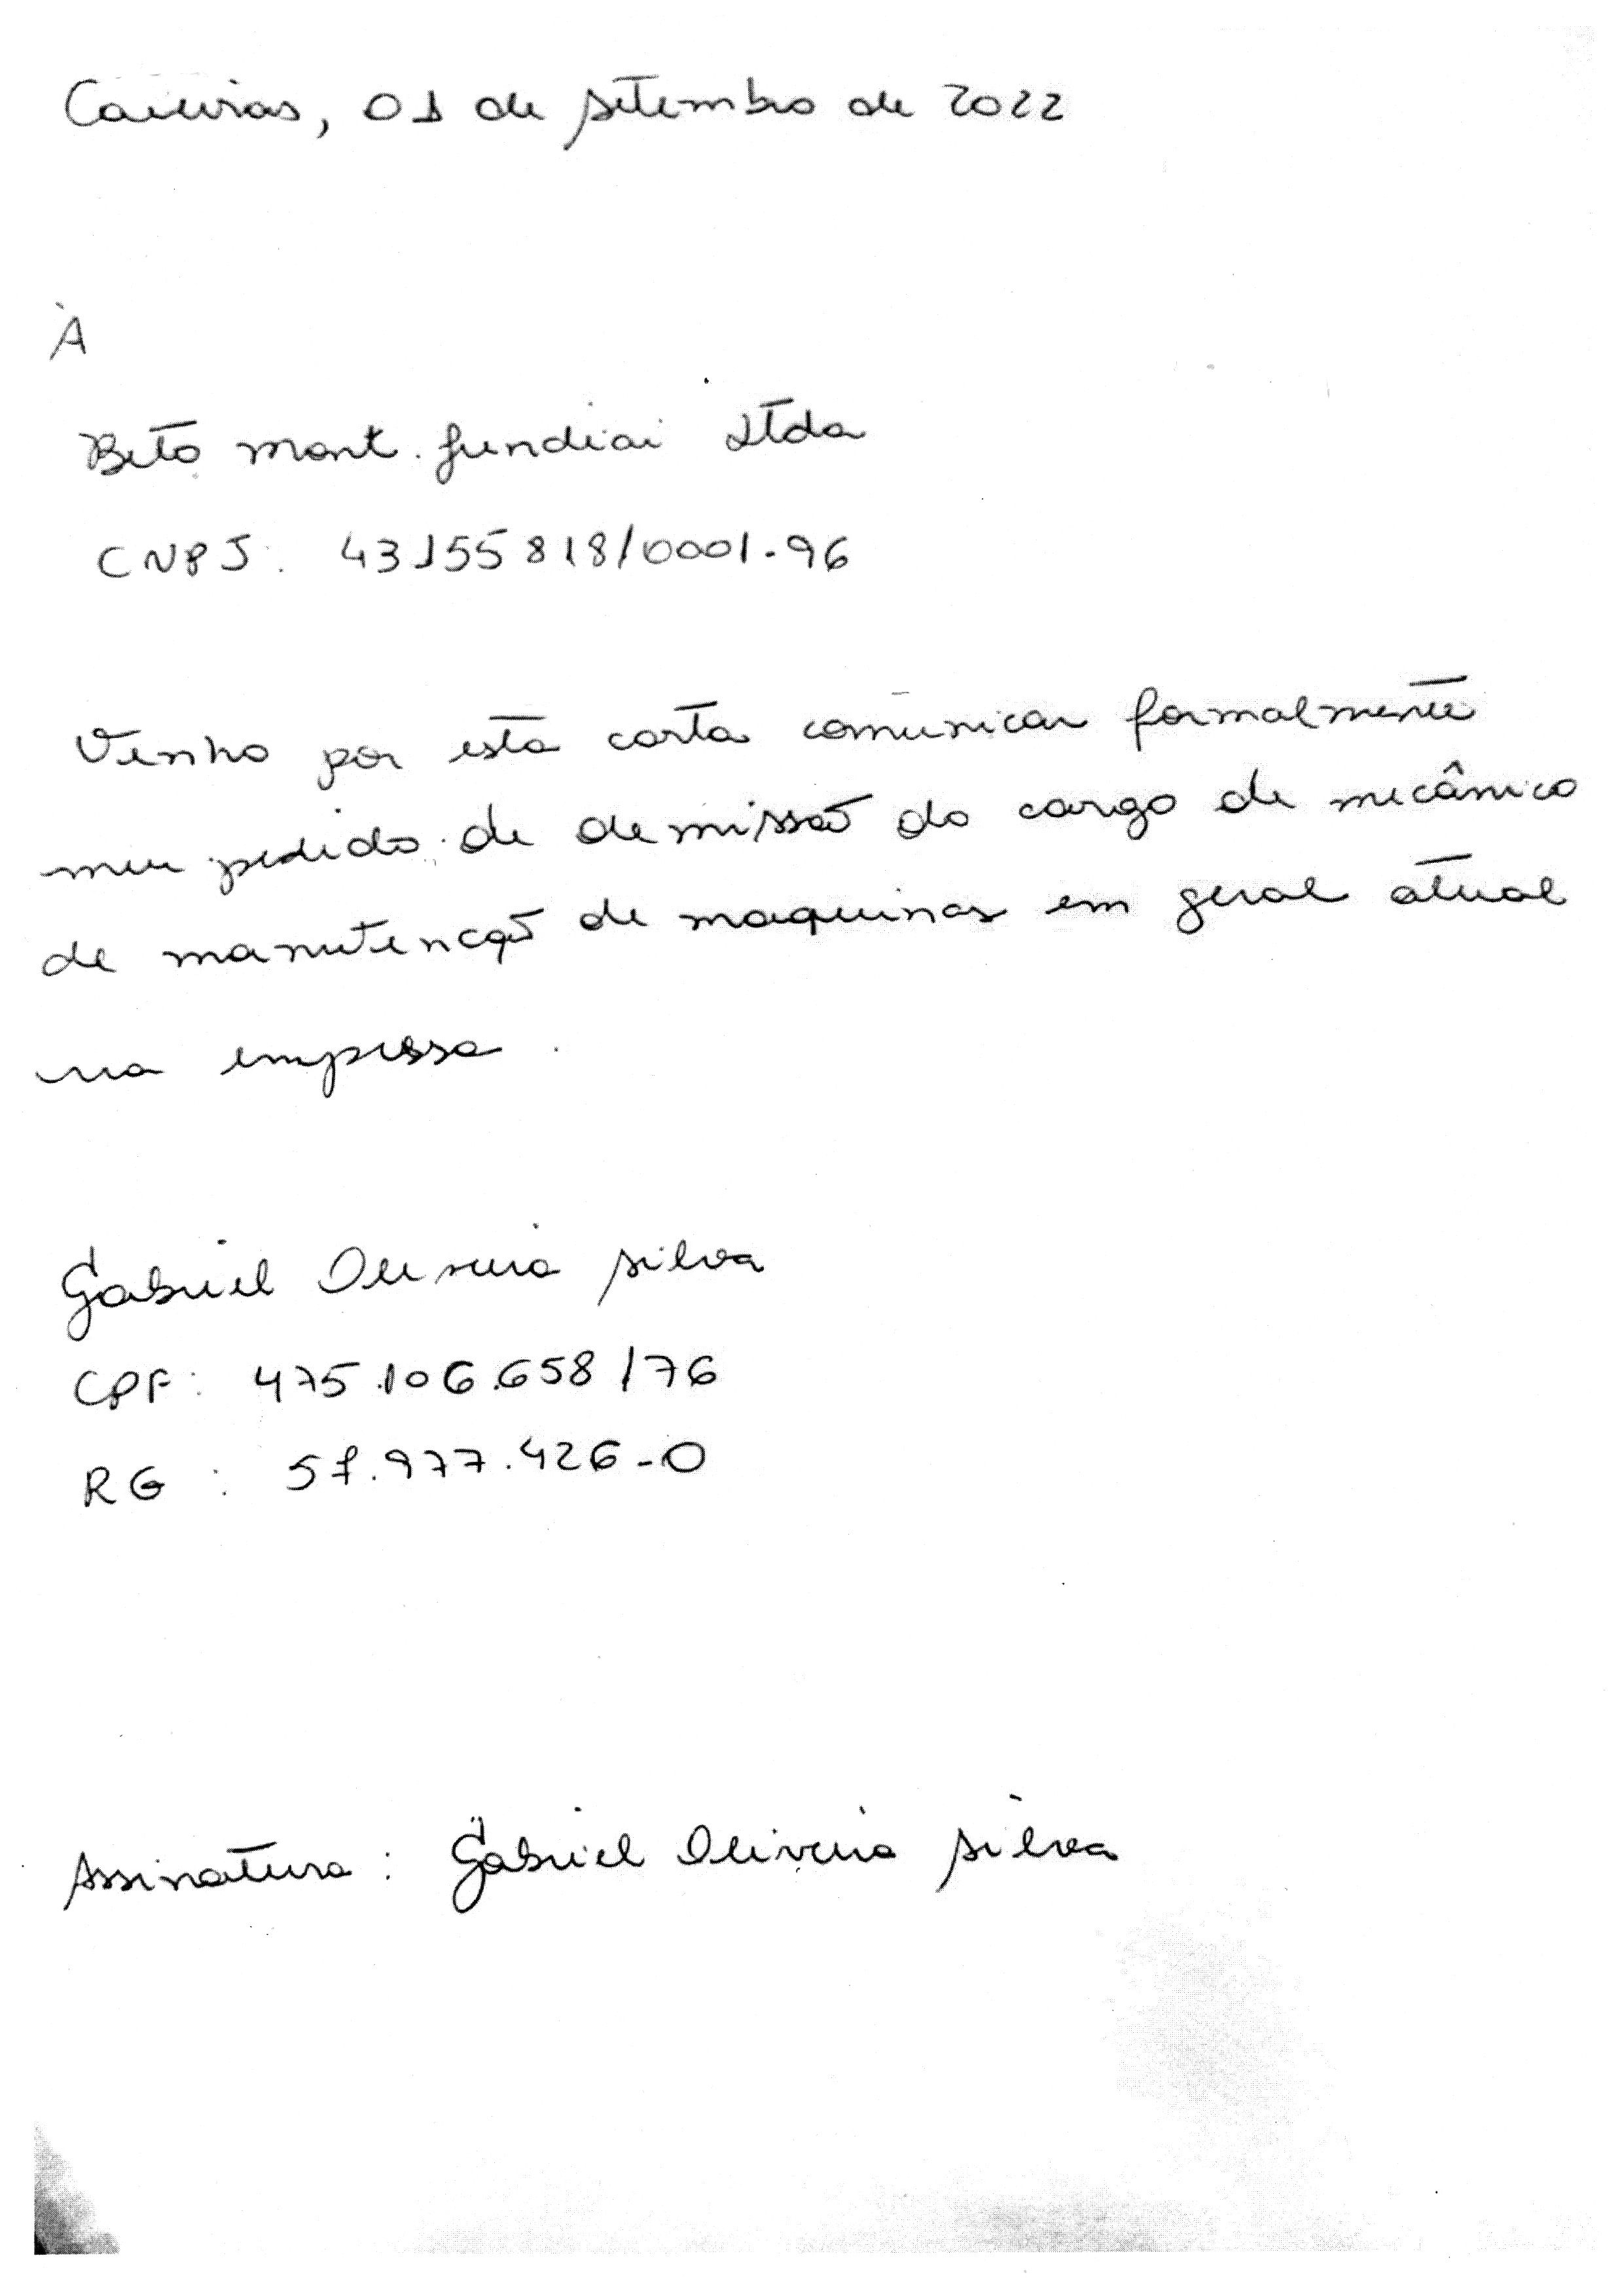 Caieiras, 01 de setembro de 2022
À
Beto mont. Jundiai Ltda
CNPJ: 43155818/0001-96
Venho por esta carta comunicar formalmente
meu pedido de demissão do cargo de mecânico
de manutencção de maquinas em geral atual
na empresa.
Gabriel Oliveira silva
CPF: 475.106.658/76
RG: 57.977.426-0
Assinatura: Gabriel Oliveira silva